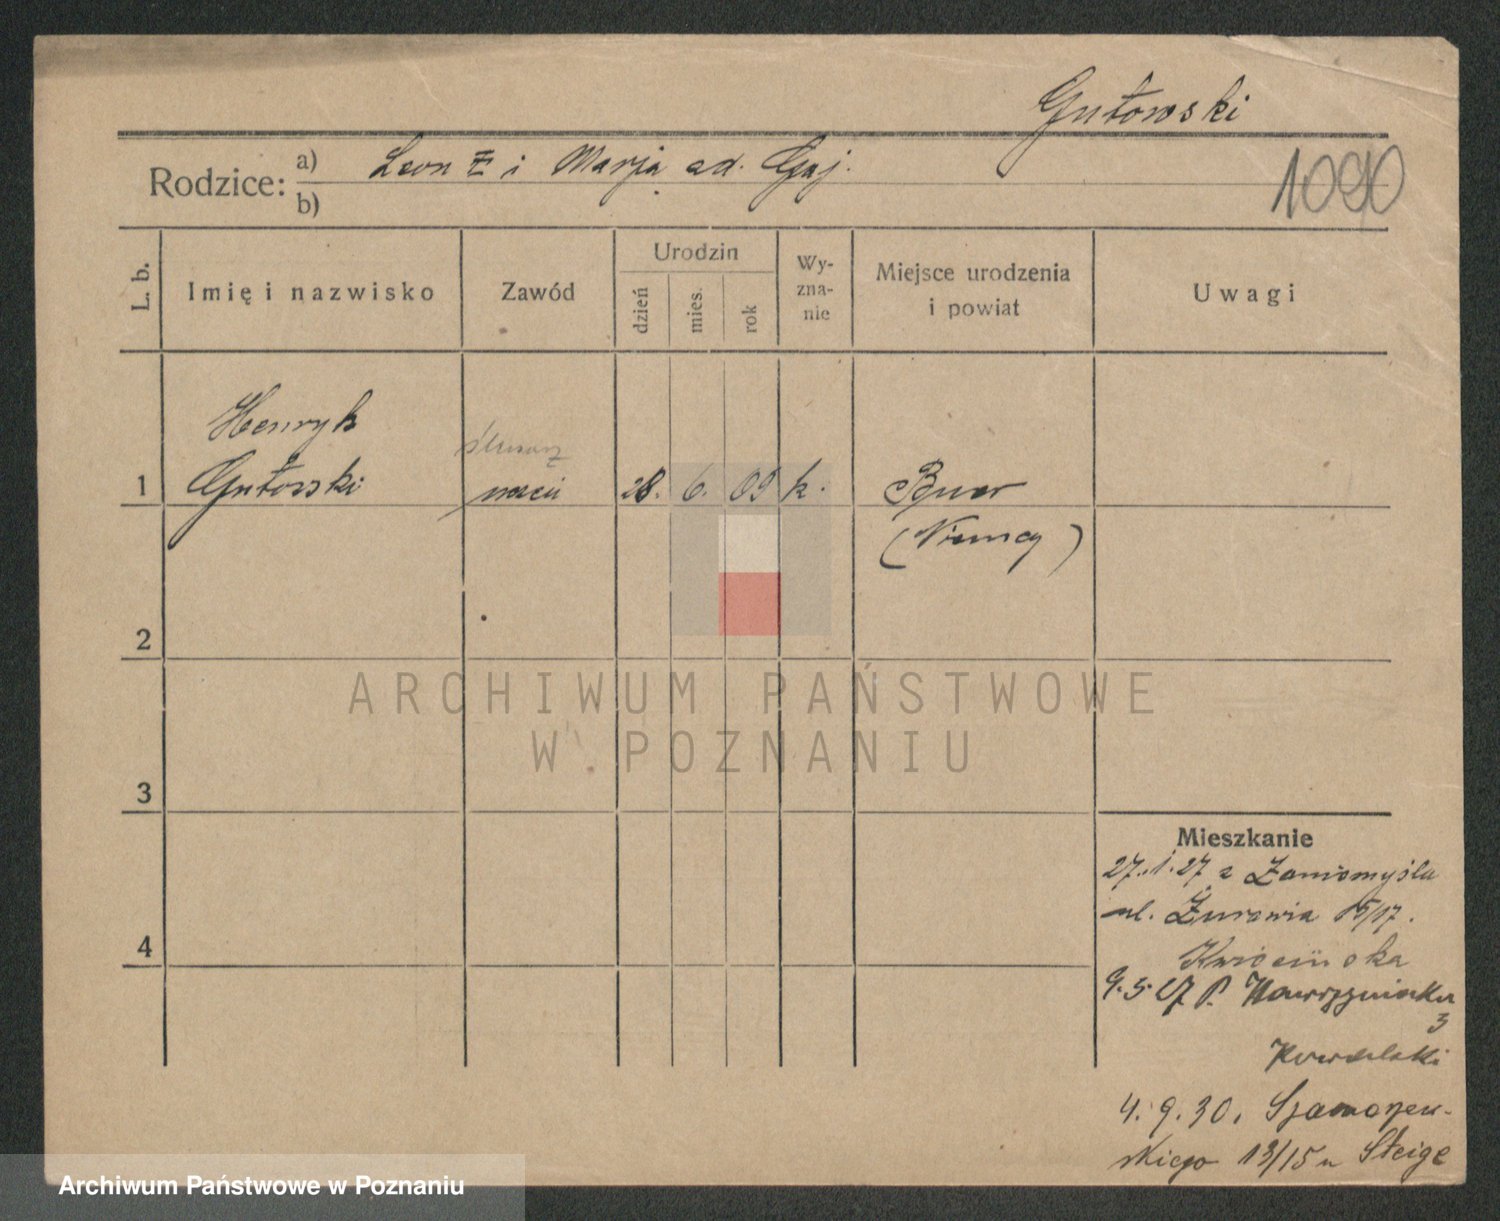 Gutowski
Rodzice: a) Leon i Marja od. Gaj.
b)
1090
L. b.
Imię i nazwisko
Zawód
Urodzin
dzień
mies.
rok
Wy-
zna-
nie
Miejsce urodzenia
i powiat
Uwagi
Henryk
ślusarz
1 Gutowski uczeń 28. 6. 09 k. Buer
(Niemcy)
2
3
4
ARCHIWUM PAŃSTWOWE
W POZNANIU
Mieszkanie
27.1.27 z Zaniemyśla
ul. Żurawia 15/17.
9.5.27 P. Wawrzyniaka
3
Kowalski
4.9.30. Szamarzew-
skiego 13/15 u Steige
Archiwum Państwowe w Poznaniu